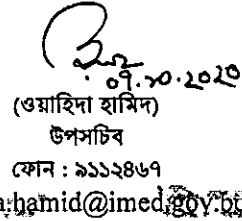 ০৭.১০.২০২০
(ওয়াহিদা হামিদ)
উপসচিব
ফোন : ৯১১২৪৬৭
a.hamid@imed.gov.b